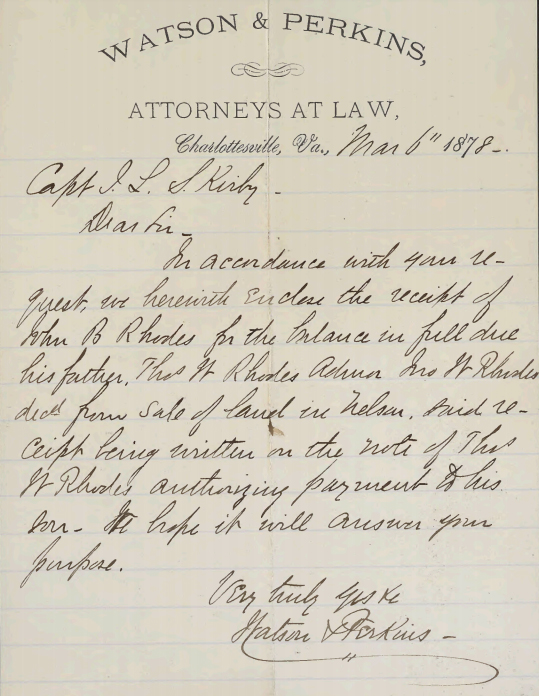 WATSON & PERKINS,
ATTORNEYS AT LAW,
Charlottesville, Va., Mar 6" 1878-.
Capt J. L. S. Kirby -
Dear Sir -
In accordance with your re-
quest, we herewith enclose the receipt of
John B Rhodes for the balance in full due
his father, Thos W Rhodes Admor Jno W Rhodes
decd from sale of land in Nelson, said re-
ceipt being written on the note of Thos
W Rhodes authorizing payment to his
son - We hope it will answer your
purpose.
Very truly yrs &c
Watson & Perkins -